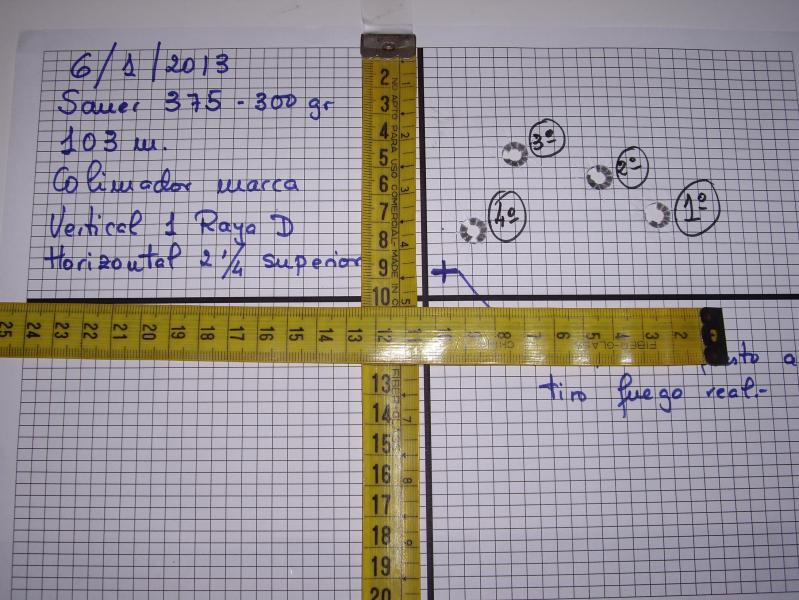 6/1/2013
Sauer 375 - 300 gr
103 m.
Colimador marca
Vertical 1 Raya D
Horizontal 2 1/4 superior
3º
2º
1º
4º
2
3
4
5
6
7
8
9
10
NO APTO PARA USO COMERCIAL-MADE IN
2
3
4
5
25 24 23 22 21 20 19 18 17 16 15 14 13 12 8 7 6 5 4 3 2
FIBER-GLASS
a
tiro fuego real.-
13
14
15
16
17
18
19
20
FIBER-GLASS
7
8
9